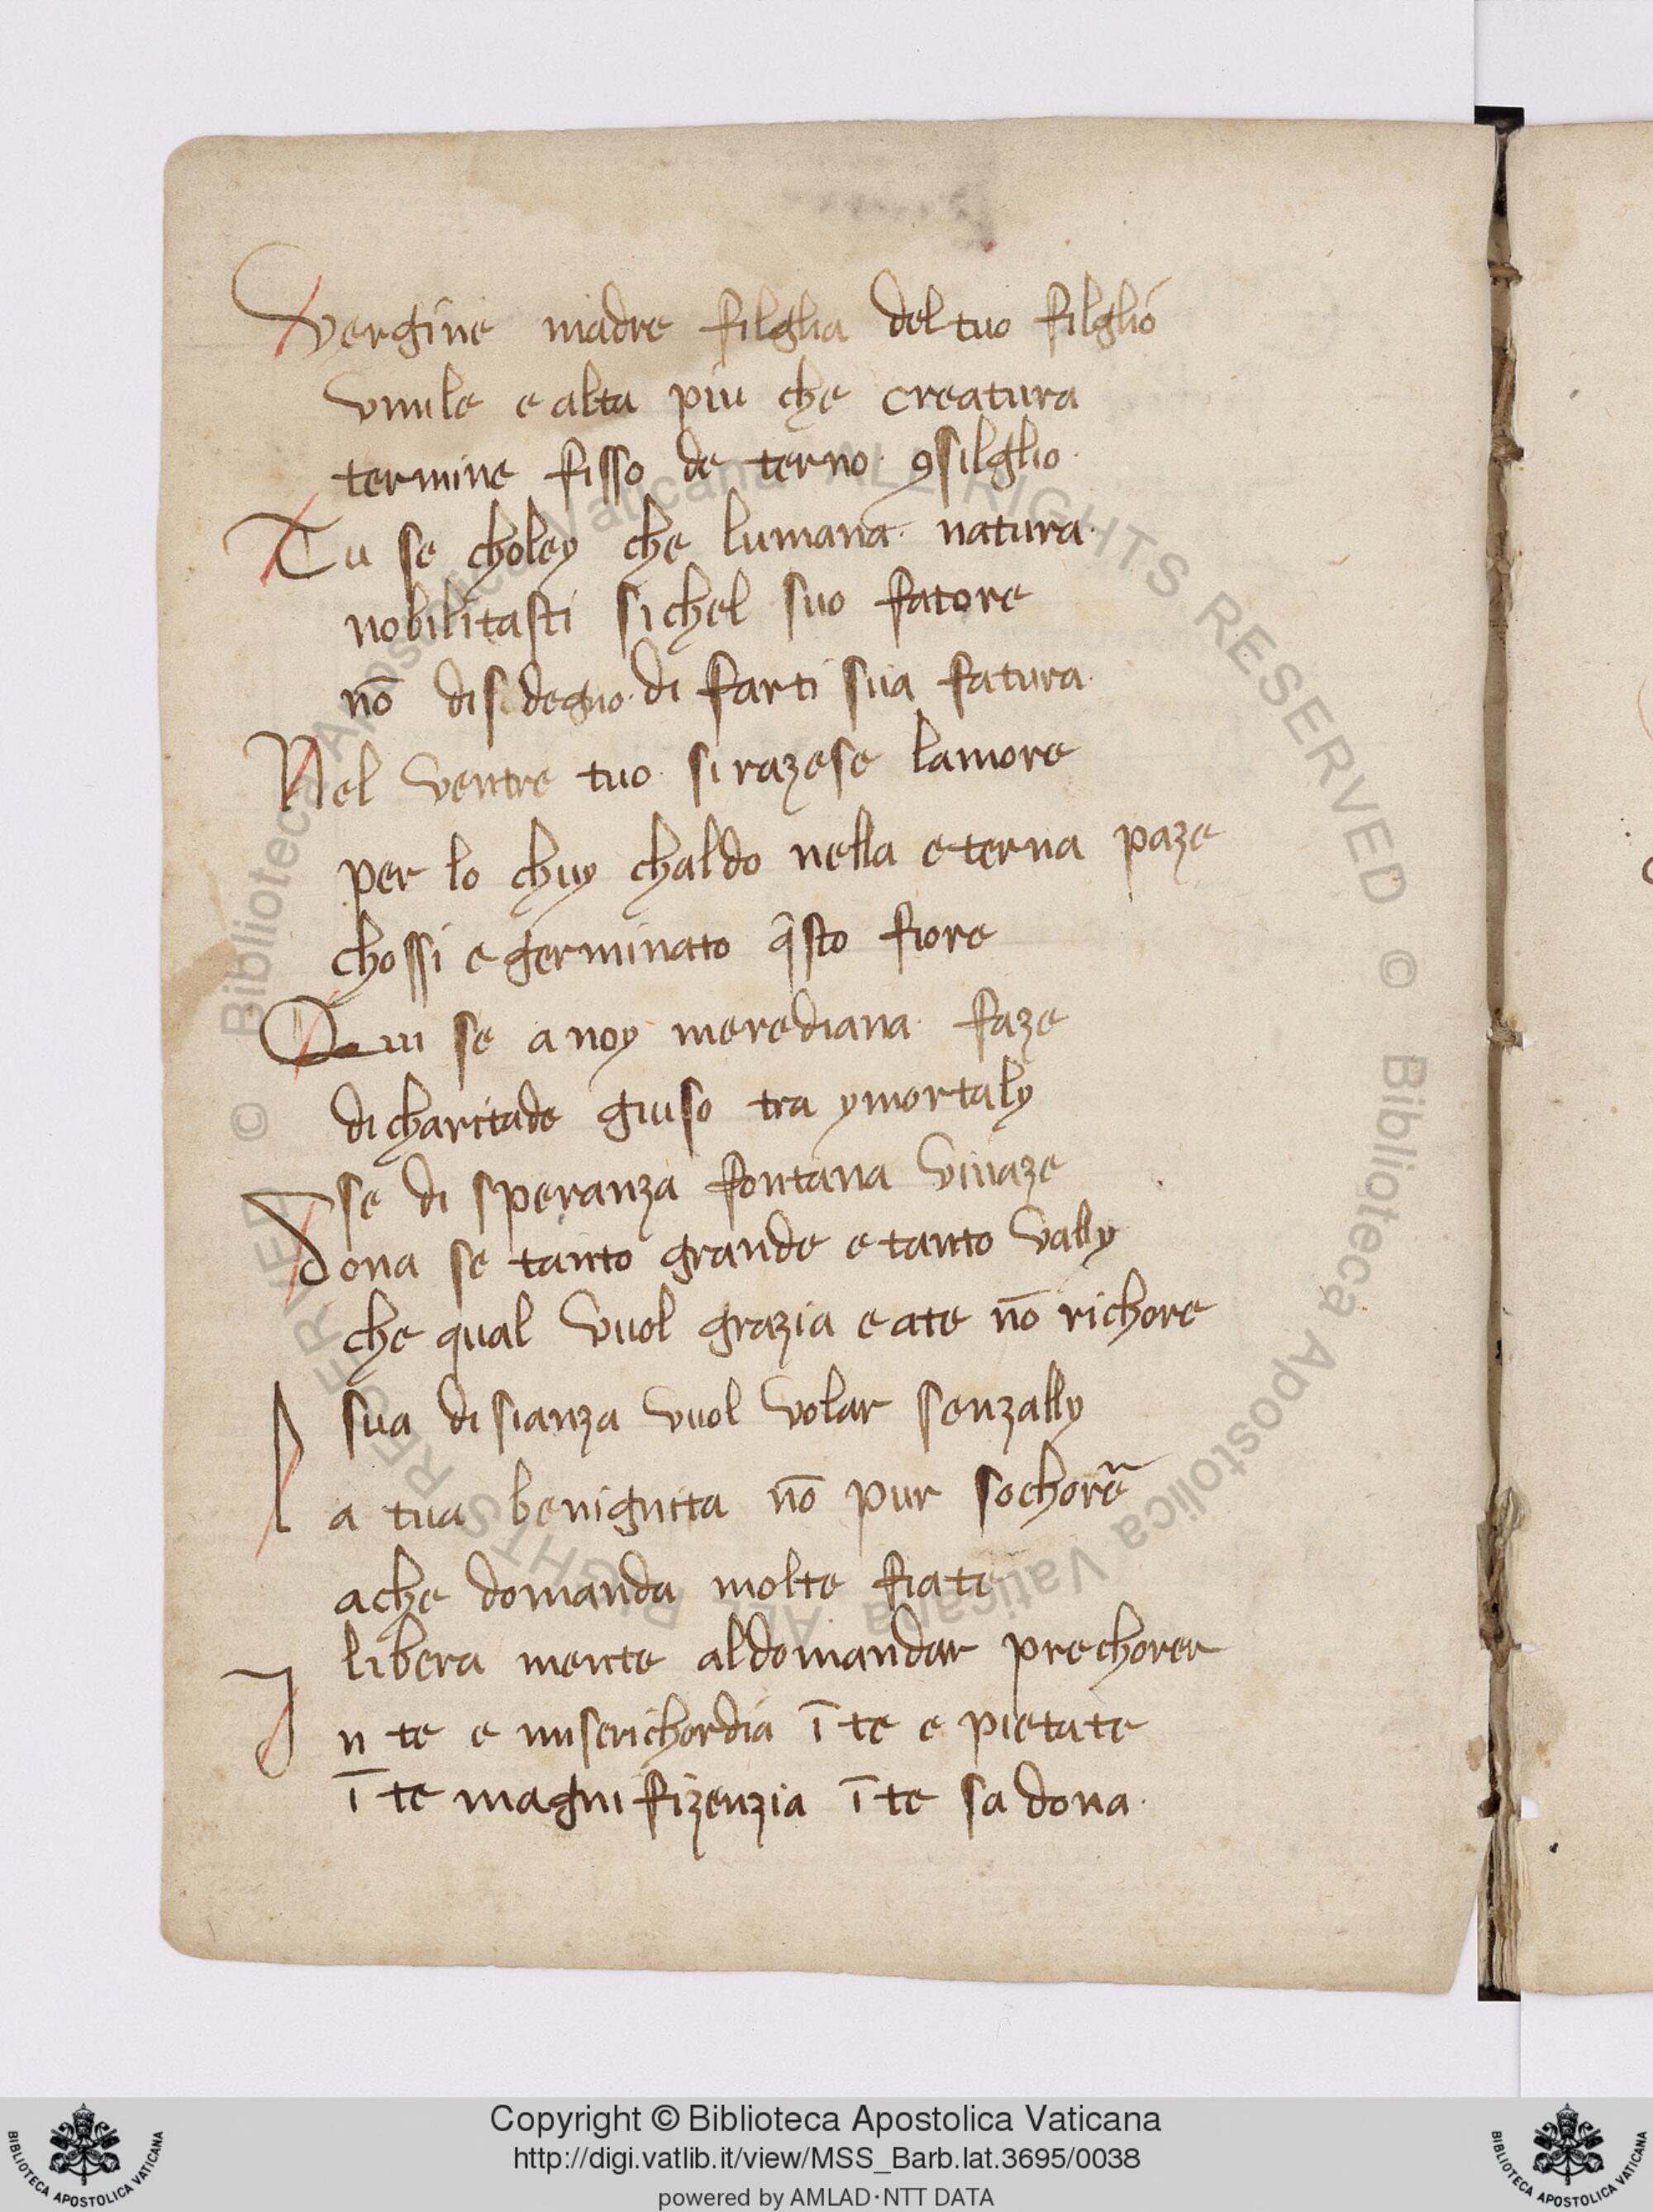 Vergine madre filglia del tuo filglio
vmile e alta piu che creatura
termine fisso de terno ꝯsilglio
Tu se choley che lumana natura
nobilitasti si chel suo fatore
nō disdegno di farti sua fatura
Nel ventre tuo si razese lamore
per lo chuy chaldo nella eterna paze
chossi e germinato q̄sto fiore
Qui se a noy merediana faze
di charitade giuso tra ymortaly
se di speranza fontana viuaze
Dona se tanto grande e tanto vally
che qual vuol grazia e ate nō richore
sua disianza vuol volar senzally
La tua benignita nō pur sochore
ache domanda molte fiate
libera mente aldomandar prechorer
In te e miserichordia ī te e pietate
ī te magnifizenzia ī te sa dona
© Biblioteca Apostolica Vaticana ALL RIGHTS RESERVED © Biblioteca Apostolica Vaticana ALL RIGHTS RESERVED
Copyright © Biblioteca Apostolica Vaticana
http://digi.vatlib.it/view/MSS_Barb.lat.3695/0038
powered by AMLAD·NTT DATA
BIBLIOTECA APOSTOLICA VATICANA
BIBLIOTECA APOSTOLICA VATICANA